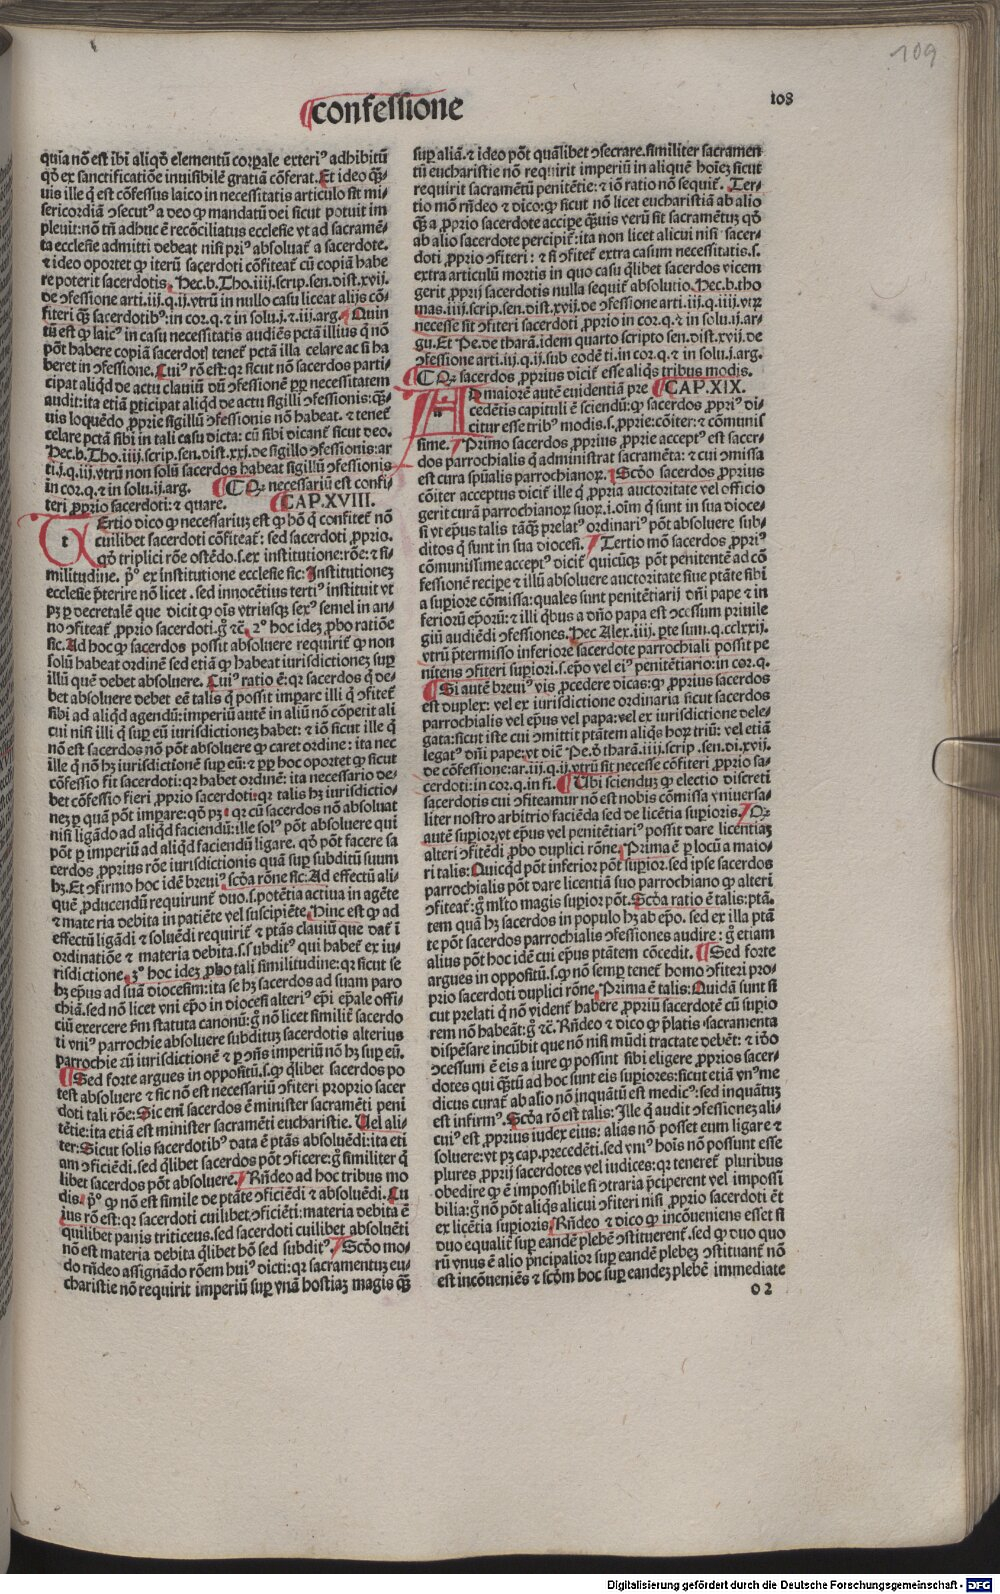 109
¶confessione
108
quia nō est ibi aliqḋ elementū corꝑale exteriꝰ adhibitū
qḋ ex sanctificatiōe inuisibilē gratiā cōferat. Et ideo qꝫ̄-
uis ille q̇ est cōfessus laico in necessitatis articulo sit mi-
sericordiā ꝯsecutꝰ a deo ꝙ mandatū dei sicut potuit im
pleuit: nō tn̄ adhuc ē recōciliatus ecclesie vt ad sacramē-
ta ecclesie admitti debeat nisi priꝰ absoluat᷑ a sacerdote.
⁊ ideo oportet ꝙ iterū sacerdoti cōfiteat᷑ cū copiā habe
re poterit sacerdotis. Hec.b.Tho.iiij.scrip.sen.dist.xvij.
de ꝯfessione arti.iij.q.ij.vtrū in nullo casu liceat alijs cō-
fiteri qꝫ̄ sacerdotibꝰ: in cor.q.⁊ in solu.j.⁊ iij.arg. Quin
tū est ꝙ laicꝰ in casu necessitatis audiēs pctā illius q̇ nō
pōt habere copiā sacerdoti tenet᷑ pctā illa celare ac si ha
beret in ꝯfessione. Cuiꝰ rō est: qꝛ sicut nō sacerdos parti-
cipat aliqḋ de actu clauiū dū ꝯfessionē ꝓpꝛ necessitatem
audit: ita etiā ꝑticipat aliqḋ de actu sigilli ꝯfessionis: qꝫ̄-
uis loquēdo ꝓprie sigillū ꝯfessionis nō habeat. ⁊ tenet᷑
celare pctā sibi in tali casu dicta: cū sibi dicant᷑ sicut deo.
Hec.b.Tho.iiij.scrip.sen.dist.xxj.de sigillo ꝯfessionis: ar
ti.j.q.iij.vtrū non solū sacerdos habeat sigillū ꝯfessionis
in cor.q.⁊ in solu.ij.arg. ¶ CQꝫ necessariū est confi-
teri ꝓprio sacerdoti: ⁊ quare. ¶CAP.XVIII.
TErtio dico ꝙ necessariuꝫ est ꝙ hō q̇ confitet᷑ nō
cuilibet sacerdoti cōfiteat᷑: sed sacerdoti ꝓprio.
qḋ triplici rōne ostēdo.s.ex institutione: rōne: ⁊ si-
militudine. pꝰ ex institutione ecclesie sic: Institutioneꝫ
ecclesie p̄terire nō licet. sed innocētius tertiꝰ instituit vt
pꝫ ꝑ decretalē que dicit ꝙ oīs vtriusqꝫ sexꝰ semel in an-
no ꝯfiteat᷑ ꝓprio sacerdoti. g̊ ⁊c̄. 2ꝰ hoc ideꝫ ꝓbo ratiōe
sic. Ad hoc ꝙ sacerdos possit absoluere requirit᷑ ꝙ non
solū habeat ordinē sed etiā ꝙ habeat iurisdictioneꝫ suꝑ
illū quē debet absoluere. Cuiꝰ ratio ē: qꝛ sacerdos q̇ de-
bet absoluere debet eē talis q̇ possit imꝑare illi q̇ ꝯfitet᷑
sibi ad aliqḋ agendū: imperiū autē in aliū nō cōpetit ali
cui nisi illi q̇ suꝑ eū iurisdictioneꝫ habet: ⁊ iō sicut ille q̇
nō est sacerdos nō pōt absoluere ꝙ caret ordine: ita nec
ille q̇ nō hꝫ iurisdictionē suꝑ eū: ⁊ ꝓpꝛ hoc oportet ꝙ sicut
cōfessio fit sacerdoti: qꝛ habet ordinē: ita necessario de-
bet cōfessio fieri ꝓprio sacerdoti: qꝛ talis hꝫ iurisdictio-
neꝫ ꝑ quā pōt imꝑare: qḋ pꝫ: qꝛ cū sacerdos nō absoluat
nisi ligādo ad aliqḋ faciendū: ille solꝰ pōt absoluere qui
pōt ꝑ imperiū ad aliqḋ faciendū ligare. qḋ pōt facere sa
cerdos ꝓprius rōne iurisdictionis quā suꝑ subditū suum
hꝫ. Et ꝯfirmo hoc idē breuiꝰ scḋa rōne sic: Ad effectū ali-
quē ꝓducendū requirunt᷑ duo.s.potētia actiua in agēte
⁊ materia debita in patiēte vel suscipiēte. Hinc est ꝙ ad
effectū ligādi ⁊ soluēdi requirit᷑ ⁊ ptās clauiū que dat᷑ ī
ordinatiōe ⁊ materia debita.s.subditꝰ qui habet᷑ ex iu-
risdictione. 3ꝰ hoc ideꝫ ꝓbo tali similitudine: qꝛ sicut se
hꝫ ep̄us ad suā diocesim: ita se hꝫ sacerdos ad suam paro
chiā. sed nō licet vni ep̄o in diocesi alteriꝰ ep̄i ep̄ale offi-
ciū exercere ẜm statuta canonū: g̊ nō licet similiē sacerdo
ti vniꝰ parrochie absoluere subdituꝫ sacerdotis alterius
parrochie cū iurisdictionē ⁊ ꝑ ꝯn̄s imperiū nō hꝫ suꝑ eū.
¶Sed forte argues in oppositū.s.ꝙ q̇libet sacerdos po
test absoluere ⁊ sic nō est necessariū ꝯfiteri proprio sacer
doti tali rōe: Sic eni sacerdos ē minister sacramēti peni
tētie: ita etiā est minister sacramēti eucharistie. Uel ali-
ter: Sicut solis sacerdotibꝰ data ē ptās absoluēdi: ita eti
am ꝯficiēdi. sed q̇libet sacerdos pōt ꝯficere: g̊ similiter q̇
libet sacerdos pōt absoluere. Rn̄deo ad hoc tribus mo
dis: pꝰ ꝙ nō est simile de ptāte ꝯficiēdi ⁊ absoluēdi. Cu
ius rō est: qꝛ sacerdoti cuilibet ꝯficiēti: materia debita ē
quilibet panis triticeus. sed sacerdoti cuilibet absoluēti
nō est materia debita q̇libet hō sed subditꝰ. Scḋo mo-
do rn̄deo assignādo rōem huiꝰ dicti: qꝛ sacramentuꝫ eu-
charistie nō requirit imperiū suꝑ vnā hostiaꝫ magis qꝫ̄
suꝑ aliā. ⁊ ideo pōt quālibet ꝯsecrare. similiter sacramen
tū eucharistie nō requirit imperiū in aliquē hoīeꝫ sicut
requirit sacramētū penitētie: ⁊ iō ratio nō sequit᷑. Ter-
tio mō rn̄deo ⁊ dico: ꝙ sicut nō licet eucharistiā ab alio
qꝫ̄ a ꝓprio sacerdote accipe qꝫ̄uis verū sit sacramētuꝫ qḋ
ab alio sacerdote percipit᷑: ita non licet alicui nisi sacer-
doti ꝓprio ꝯfiteri: ⁊ si ꝯfitet᷑ extra casum necessitatis.s.
extra articulū mortis in quo casu q̇libet sacerdos vicem
gerit ꝓprij sacerdotis nulla sequit᷑ absolutio. Hec.b.tho
mas.iiij.scrip.sen.dist.xvij.de ꝯfessione arti.iij.q.iiij.vtꝝ
necesse sit ꝯfiteri sacerdoti ꝓprio in cor.q.⁊ in solu.ij.ar-
gu. Et Pe.de tharā.idem quarto scripto sen.dist.xvij.de
ꝯfessione arti.iij.q.ij.sub eodē ti.in cor.q.⁊ in solu.j.arg.
¶CQꝫ sacerdos ꝓprius dicit᷑ esse aliqs tribus modis.
AD maiorē autē euidentiā pre ¶CAP.XIX.
cedētis capituli ē sciendū: ꝙ sacerdos ꝓpriꝰ di-
citur esse tribꝰ modis.s.ꝓprie: cōiter: ⁊ cōmunis
sime. Primo sacerdos ꝓprius ꝓprie acceptꝰ est sacer-
dos parrochialis q̇ administrat sacramēta: ⁊ cui ꝯmissa
est cura sp̄ualis parrochianoꝝ. Scḋo sacerdos ꝓprius
cōiter acceptus dicit᷑ ille q̇ ꝓpria auctoritate vel officio
gerit curā parrochianoꝝ suoꝝ.i.oīm q̇ sunt in sua dioce-
si vt ep̄us talis tāqꝫ̄ prelatꝰ ordinariꝰ pōt absoluere sub-
ditos q̇ sunt in sua diocesi. Tertio mō sacerdos ꝓpriꝰ
cōmunissime acceptꝰ dicit᷑ quicūqꝫ pōt penitentē ad cō
fessionē recipe ⁊ illū absoluere auctoritate siue ptāte sibi
a suꝑiore cōmissa: quales sunt penitētiarij dn̄i pape ⁊ in
ferioꝝ ep̄oꝝ: ⁊ illi q̇bus a dn̄o papa est ꝯcessum priuile
giū audiēdi ꝯfessiones. Hec Alex.iiij.pte sum.q.cclxxij.
vtrū p̄termisso inferiore sacerdote parrochiali possit pe
nitens ꝯfiteri suꝑiori.s.ep̄o vel eiꝰ penitētiario: in cor.q.
¶Si autē breuiꝰ vis ꝓcedere dicas: ꝙ ꝓprius sacerdos
est duplex: vel ex iurisdictione ordinaria sicut sacerdos
parrochialis vel ep̄us vel papa: vel ex iurisdictione dele-
gata: sicut iste cui ꝯmittit ptātem aliqs hoꝝ triū: vel etiā
legatꝰ dn̄i pape: vt dicit᷑ Pe.ḋ tharā.iiij.scrip.sen.di.xvij.
de cōfessione: ar.iij.q.ij.vtrū sit necesse cōfiteri ꝓprio sa-
cerdoti: in cor.q.in fi. ¶Ubi sciendū ꝙ electio discreti
sacerdotis cui ꝯfiteamur nō est nobis cōmissa vniuersa-
liter nostro arbitrio faciēda sed de licētia suꝑioris. Qꝫ
autē suꝑior vt ep̄us vel penitētiariꝰ possit dare licentiaꝫ
alteri ꝯfitēdi ꝓbo duplici rōne. Prima ē ꝑ locū a maio-
ri talis: Quicqḋ pōt inferior pōt suꝑior. sed ipse sacerdos
parrochialis pōt dare licentiā suo parrochiano ꝙ alteri
ꝯfiteat᷑: g̊ ml̄to magis suꝑior pōt. Scḋa ratio ē talis: ptā-
tem quā hꝫ sacerdos in populo hꝫ ab ep̄o. sed ex illa ptā
te pōt sacerdos parrochialis ꝯfessiones audire: g̊ etiam
alius pōt hoc idē cui ep̄us ptātem cōcedit. ¶Sed forte
argues in oppositū.s.ꝙ nō semꝑ tenet᷑ homo ꝯfiteri pro-
prio sacerdoti duplici rōne. Prima ē talis: Quidā sunt si
cut prelati q̇ nō vident᷑ habere ꝓpriū sacerdotē cū suꝑio
rem nō habeāt: g̊ ⁊c̄. Rn̄deo ⁊ dico ꝙ p̄latis sacramenta
dispēsare incūbit que nō nisi mūdi tractate debēt: ⁊ iḋo
ꝯcessum ē eis a iure ꝙ possint sibi eligere ꝓprios sacer-
dotes qui qꝫ̄tū ad hoc sunt eis suꝑiores: sicut etiā vnꝰ me
dicus curat᷑ ab alio nō inquātū est medicꝰ: sed inquātuꝫ
est infirmꝰ. Scḋa rō est talis: Ille q̇ audit ꝯfessioneꝫ ali-
cuiꝰ est ꝓprius iudex eius: alias nō posset eum ligare ⁊
soluere: vt pꝫ cap.precedēti. sed vniꝰ hoīs nō possunt esse
plures ꝓprij sacerdotes vel iudices: qꝛ teneret᷑ pluribus
obedire ꝙ ē impossibile si ꝯtraria p̄ciperent vel impossi
bilia: g̊ nō pōt aliqs alicui ꝯfiteri nisi ꝓprio sacerdoti ēt
ex licētia suꝑioris. Rn̄deo ⁊ dico ꝙ incōueniens esset si
duo equalit᷑ suꝑ eandē plebē ꝯstituerent᷑. sed ꝙ duo quo
rū vnus ē alio p̄ncipalior suꝑ eandē plebeꝫ ꝯstituant᷑ nō
est incōueniēs ⁊ scḋm hoc suꝑ eandeꝫ plebē immediate
o 2
Digitalisierung gefördert durch die Deutsche Forschungsgemeinschaft - DFG